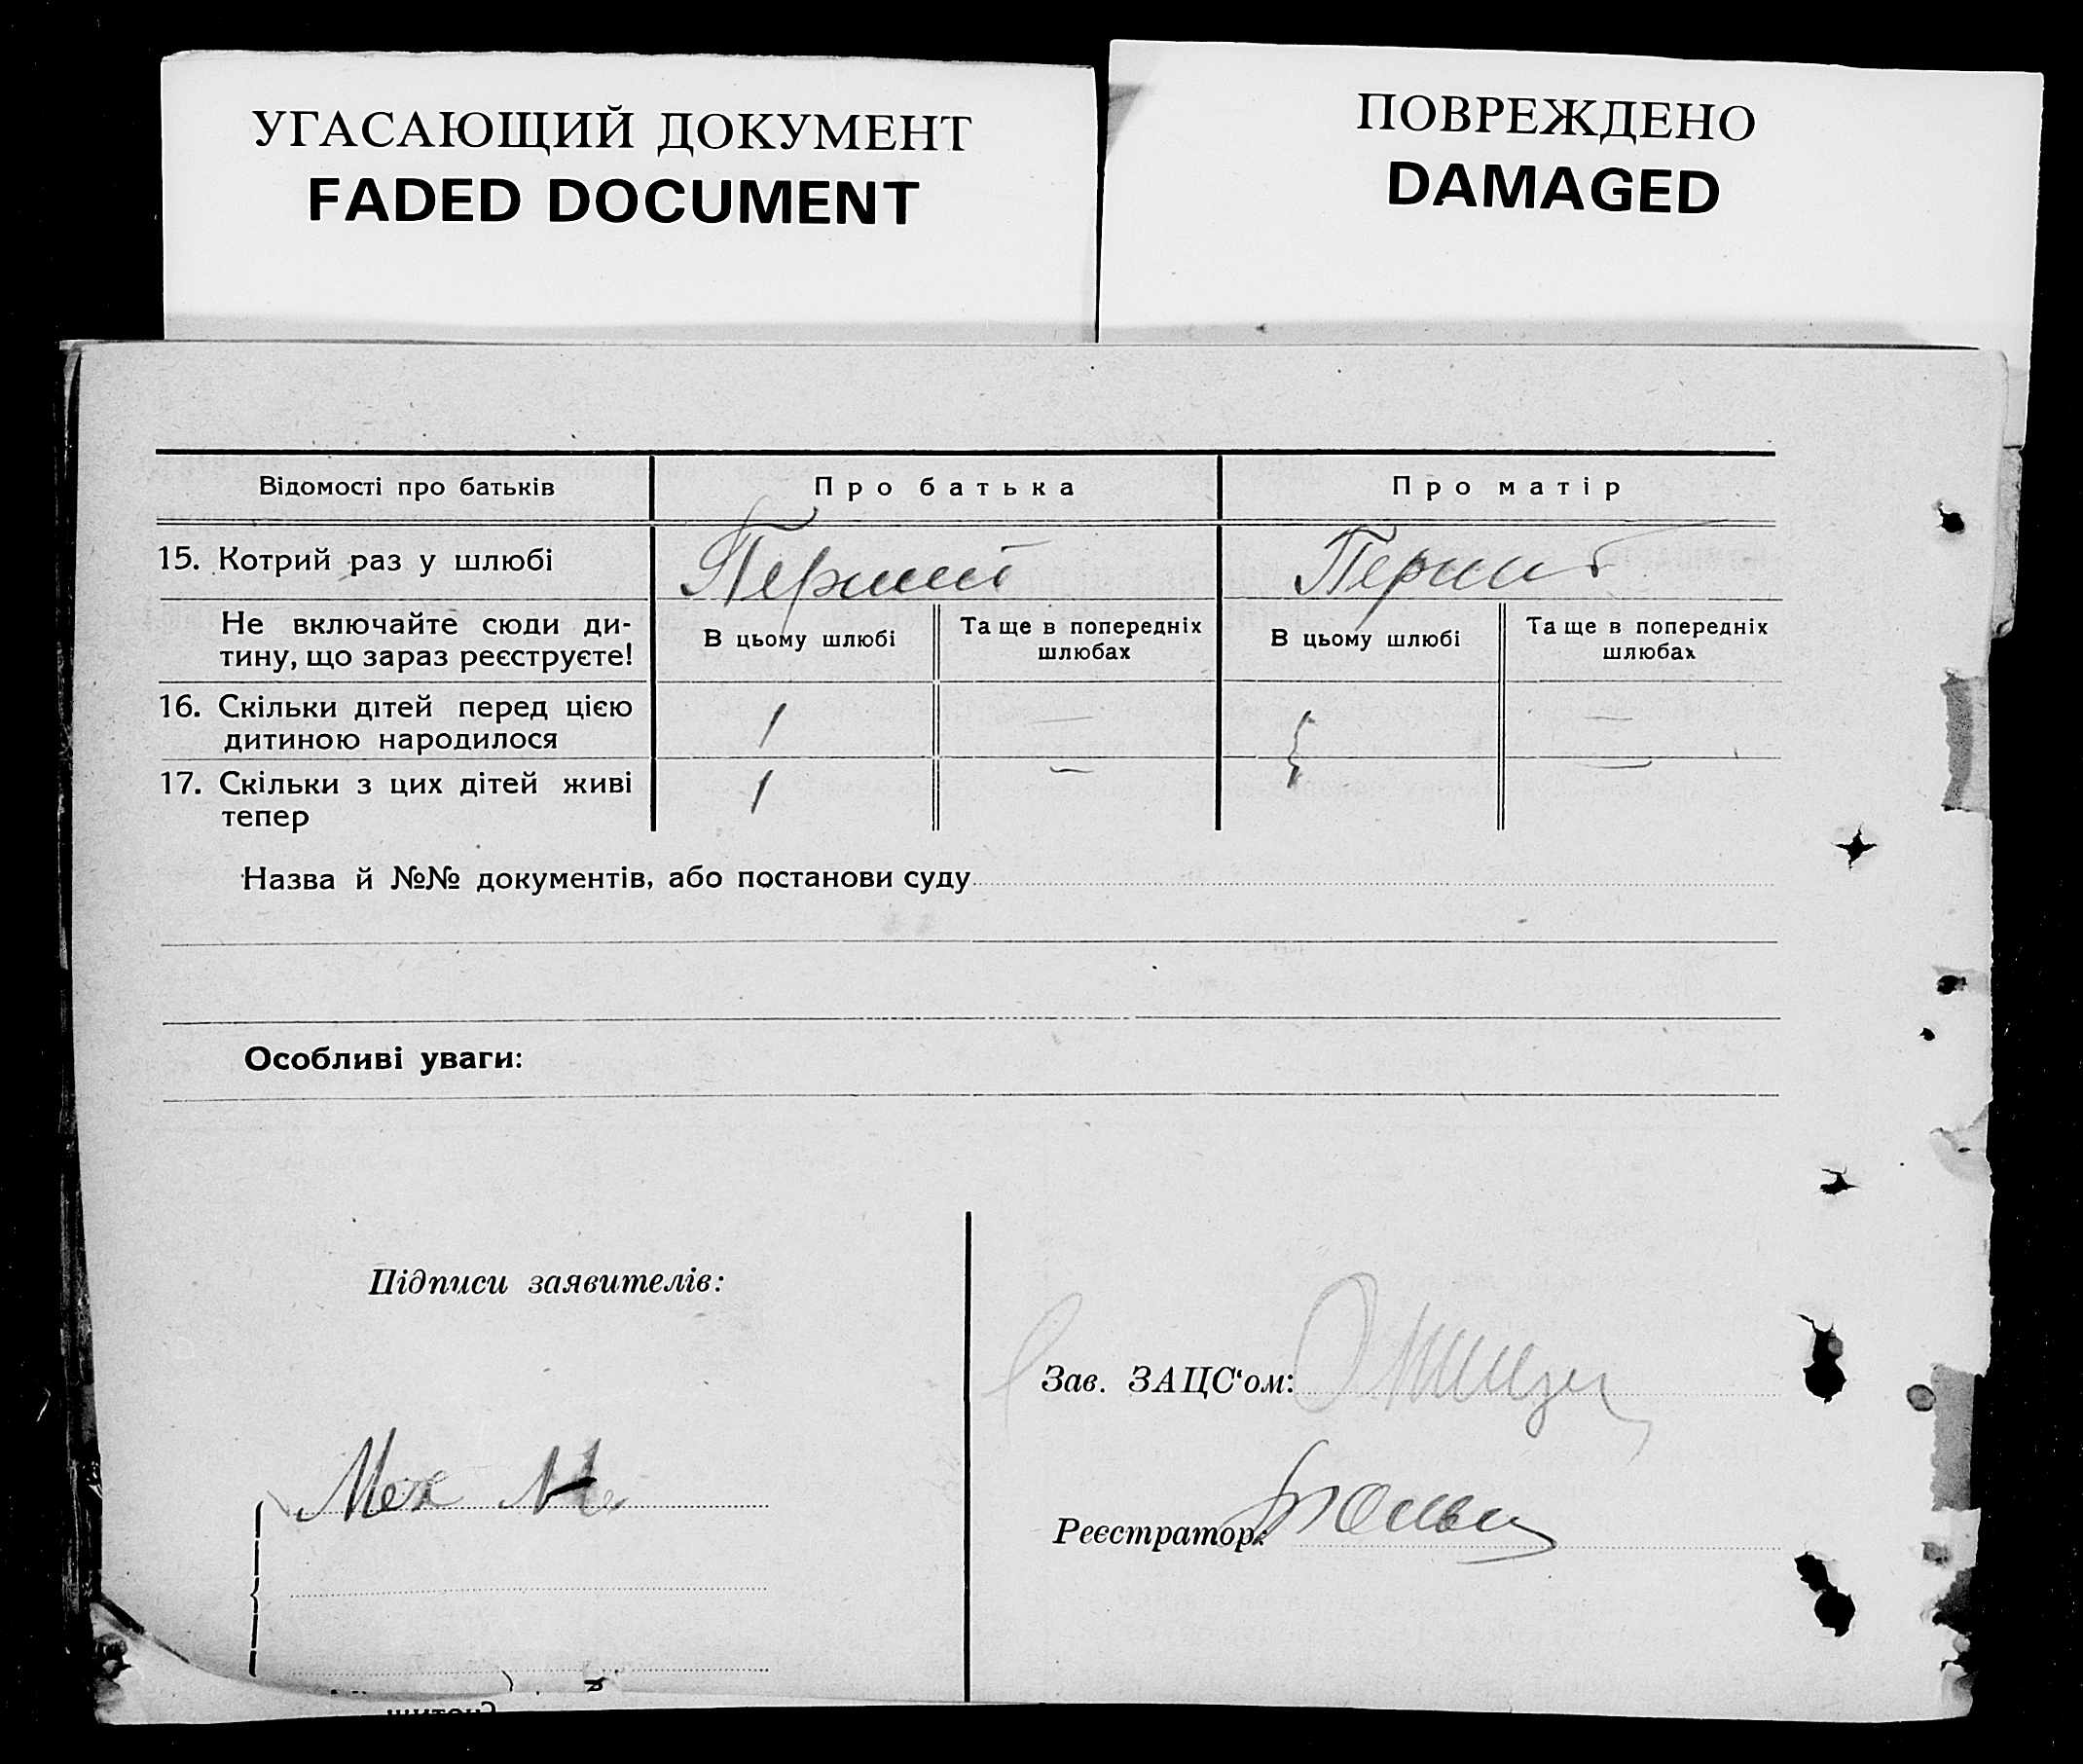 УГАСАЮЩИЙ ДОКУМЕНТ
FADED DOCUMENT
ПОВРЕЖДЕНО
DAMAGED
Відомості про батьків
Про батька
Про матір
15. Котрий раз у шлюбі
Перший
Перший
Не включайте сюди ди-
тину, що зараз реєструєте!
В цьому шлюбі
Та ще в попередніх
шлюбах
В цьому шлюбі
Та ще в попередніх
шлюбах
16. Скільки дітей перед цією
дитиною народилося
1
—
1
—
17. Скільки з цих дітей живі
тепер
1
—
1
—
Назва й №№ документів, або постанови суду
Особливі уваги:
Підписи заявителів:
Зав. ЗАЦС‘ом:
Реєстратор: